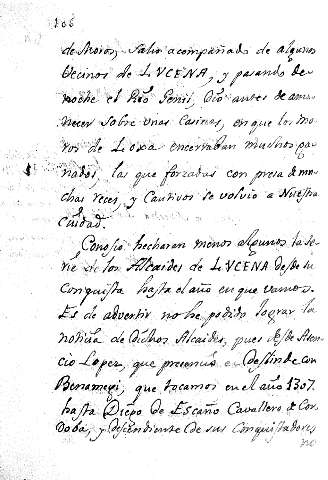 106
de Moros, salio acompañado de algunos
Vecinos de LVCENA, y pasando de
noche el Rio Genil, dio antes de ama
necer sobre unas Casinas, en que los mo
ros de Loxa encerraban muchos ga
nados, las que forzadas con presa de mu
chas reces, y Cautivos se volvio a Nuestra
Ciudad.
hecharan menos algunos la se
rie de los Alcaides de LVCENA desde su
Conquista hasta el año en que vamos.
Es de advertir no he podido lograr la
noticia de Dichos Alcaides, pues desde Asen
cio Lopez, que presencio el Deslinde con
Benameji, que tocamos en el año 1307.
hasta Diego de Escaño Cavallero de Cor
doba, y descendiente de sus Conquistadores
no